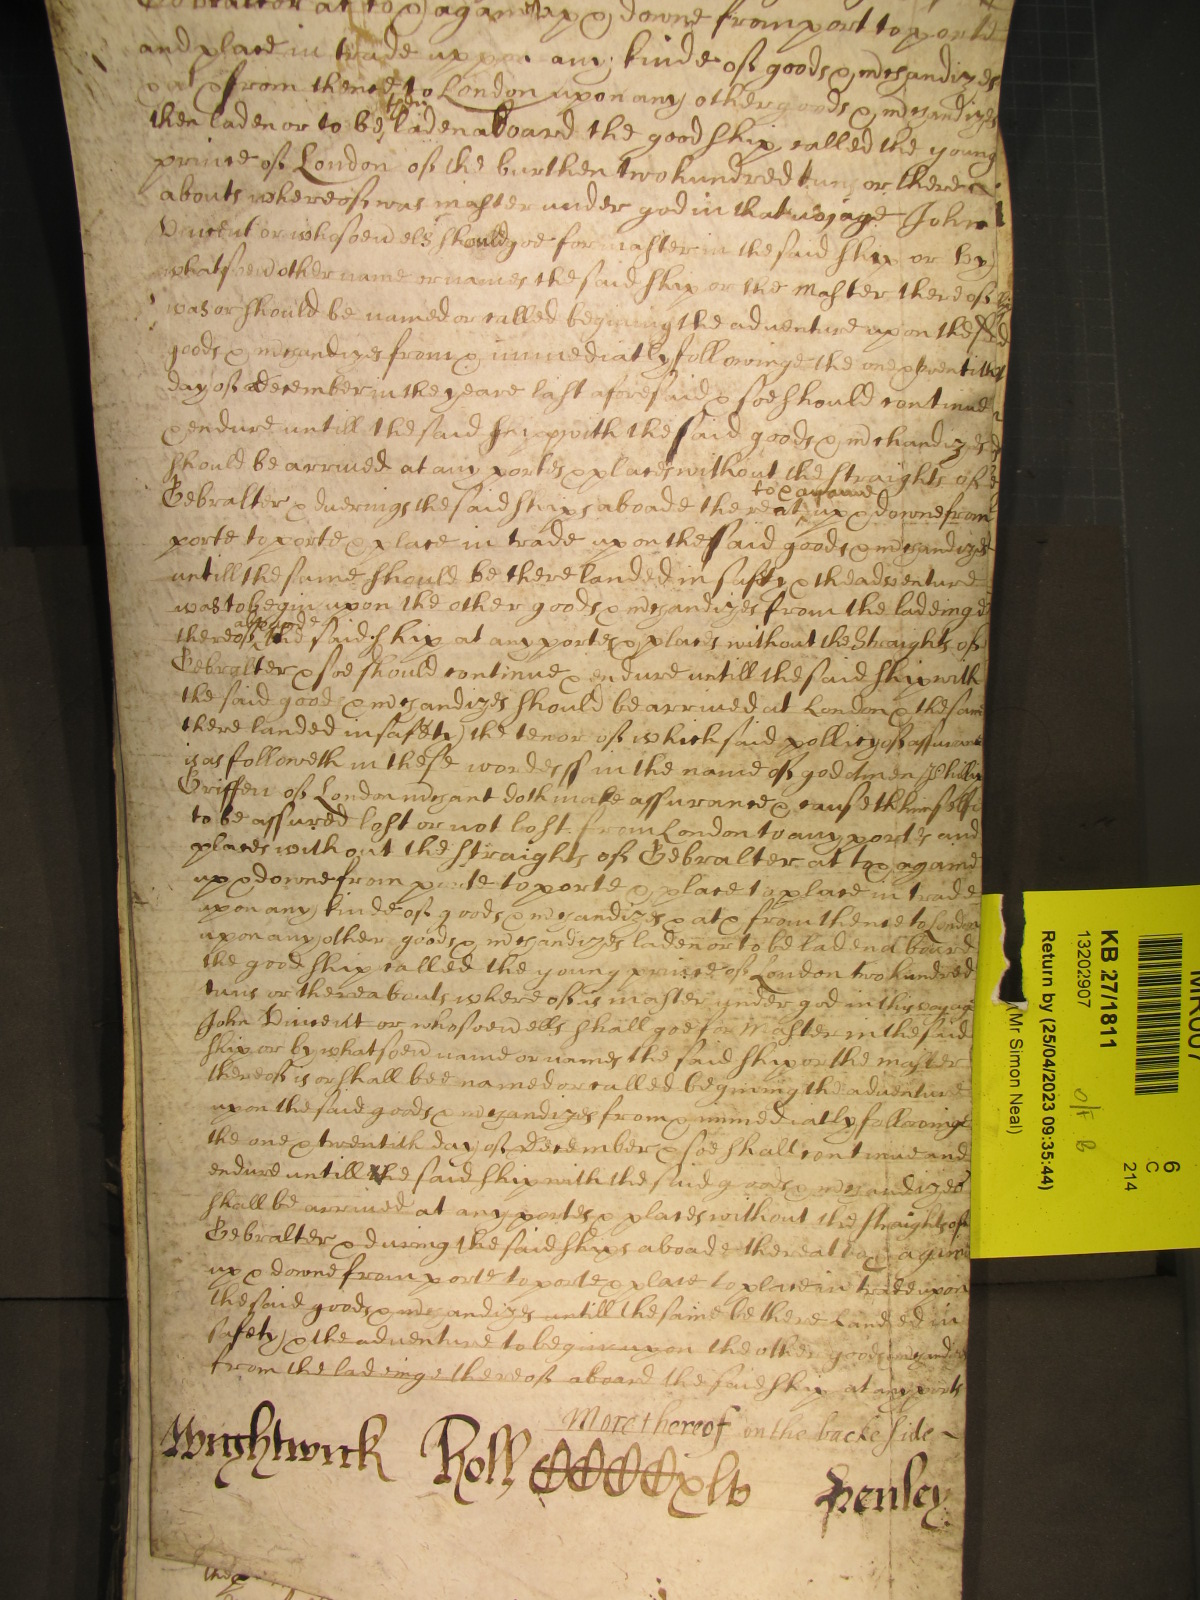 Gebralter at to & againe up & downe from port to porte
and place in trade uppon any kinde of goods & mchandizes
& at & from thence to London upon any other goods & mchandizes
then laden or to be then laden aboard the good ship called the young
prince of London of the burthen two hundred tuns or there
abouts whereof was master under god in that voyage John
Vincent or whosoever els should goe for master in the said ship or by
whatsoever other name or names the said ship or the master thereof
was or should be named or called begining the adventure upon the sd
goods & mchandizes from & immediatly followinge the one & twentith
day of december in the yeare last aforesaid & soe should continue
& endure untill the said ship with the said goods & mchandizes
should be arrived at any portes & places without the straights of
Gebralter & duerings the said ships aboade there at to & againe up & downe from
porte to porte & place in trade upon the said goods & mchandizes
untill the same should be there landed in safty & theadventure
was to begin upon the other goods & mchandizes from the ladeinge
thereof aboard the said ship at any portes & places without the Straights of
Gebralter & soe should continue & endure untill the said ship with
the said goods & mchandizes should be arrived at London & the same
there landed in safety) the tenor of which said pollicy of assurance
is as followeth in these wordes ss in the name of god Amen Phillip
Griffen of London mchant doth make assurance & cause th himselfe
to be assured lost or not lost from London to any portes and
places without the straights of Gebralter at to & againe
up & downe from porte to porte & place to place in trade
upon any kinde of goods & mchandizes & at & from thence to London
upon any other goods & mchandizes laden or to be laden a board
the good ship called the young prince of London two hundred
tuns or thereabouts where of is master under god in this voyage
John Vincent or whosoever ells shall goe for Master in the said
ship or by whatsoever name or names the said ship or the master
thereof is or shall bee named or called begining the adventure
upon the said goods & mchandizes from & immediatly followinge
the one & twentith day of december & soe shall continue and
endure untill the said ship with the said goods & mchandizes
shall be arrived at any portes & places without the straights of
Gebralter & during the said ships aboade there at to & againe
up & downe from porte to porte & place to place in trade upon
the said goods & mchandizes untill the same be there landed in
safety & the adventure to begin upon the other goods & mchandizes
from the ladeinge thereof aboard the said ship at any ports
More thereof on the backe side
Wightwick Roll CCCCxlv Henley
MR007
6
C
214
KB 27/1811
13202907
Return by (25/04/2023 09:35:44)
(Mr Simon Neal)